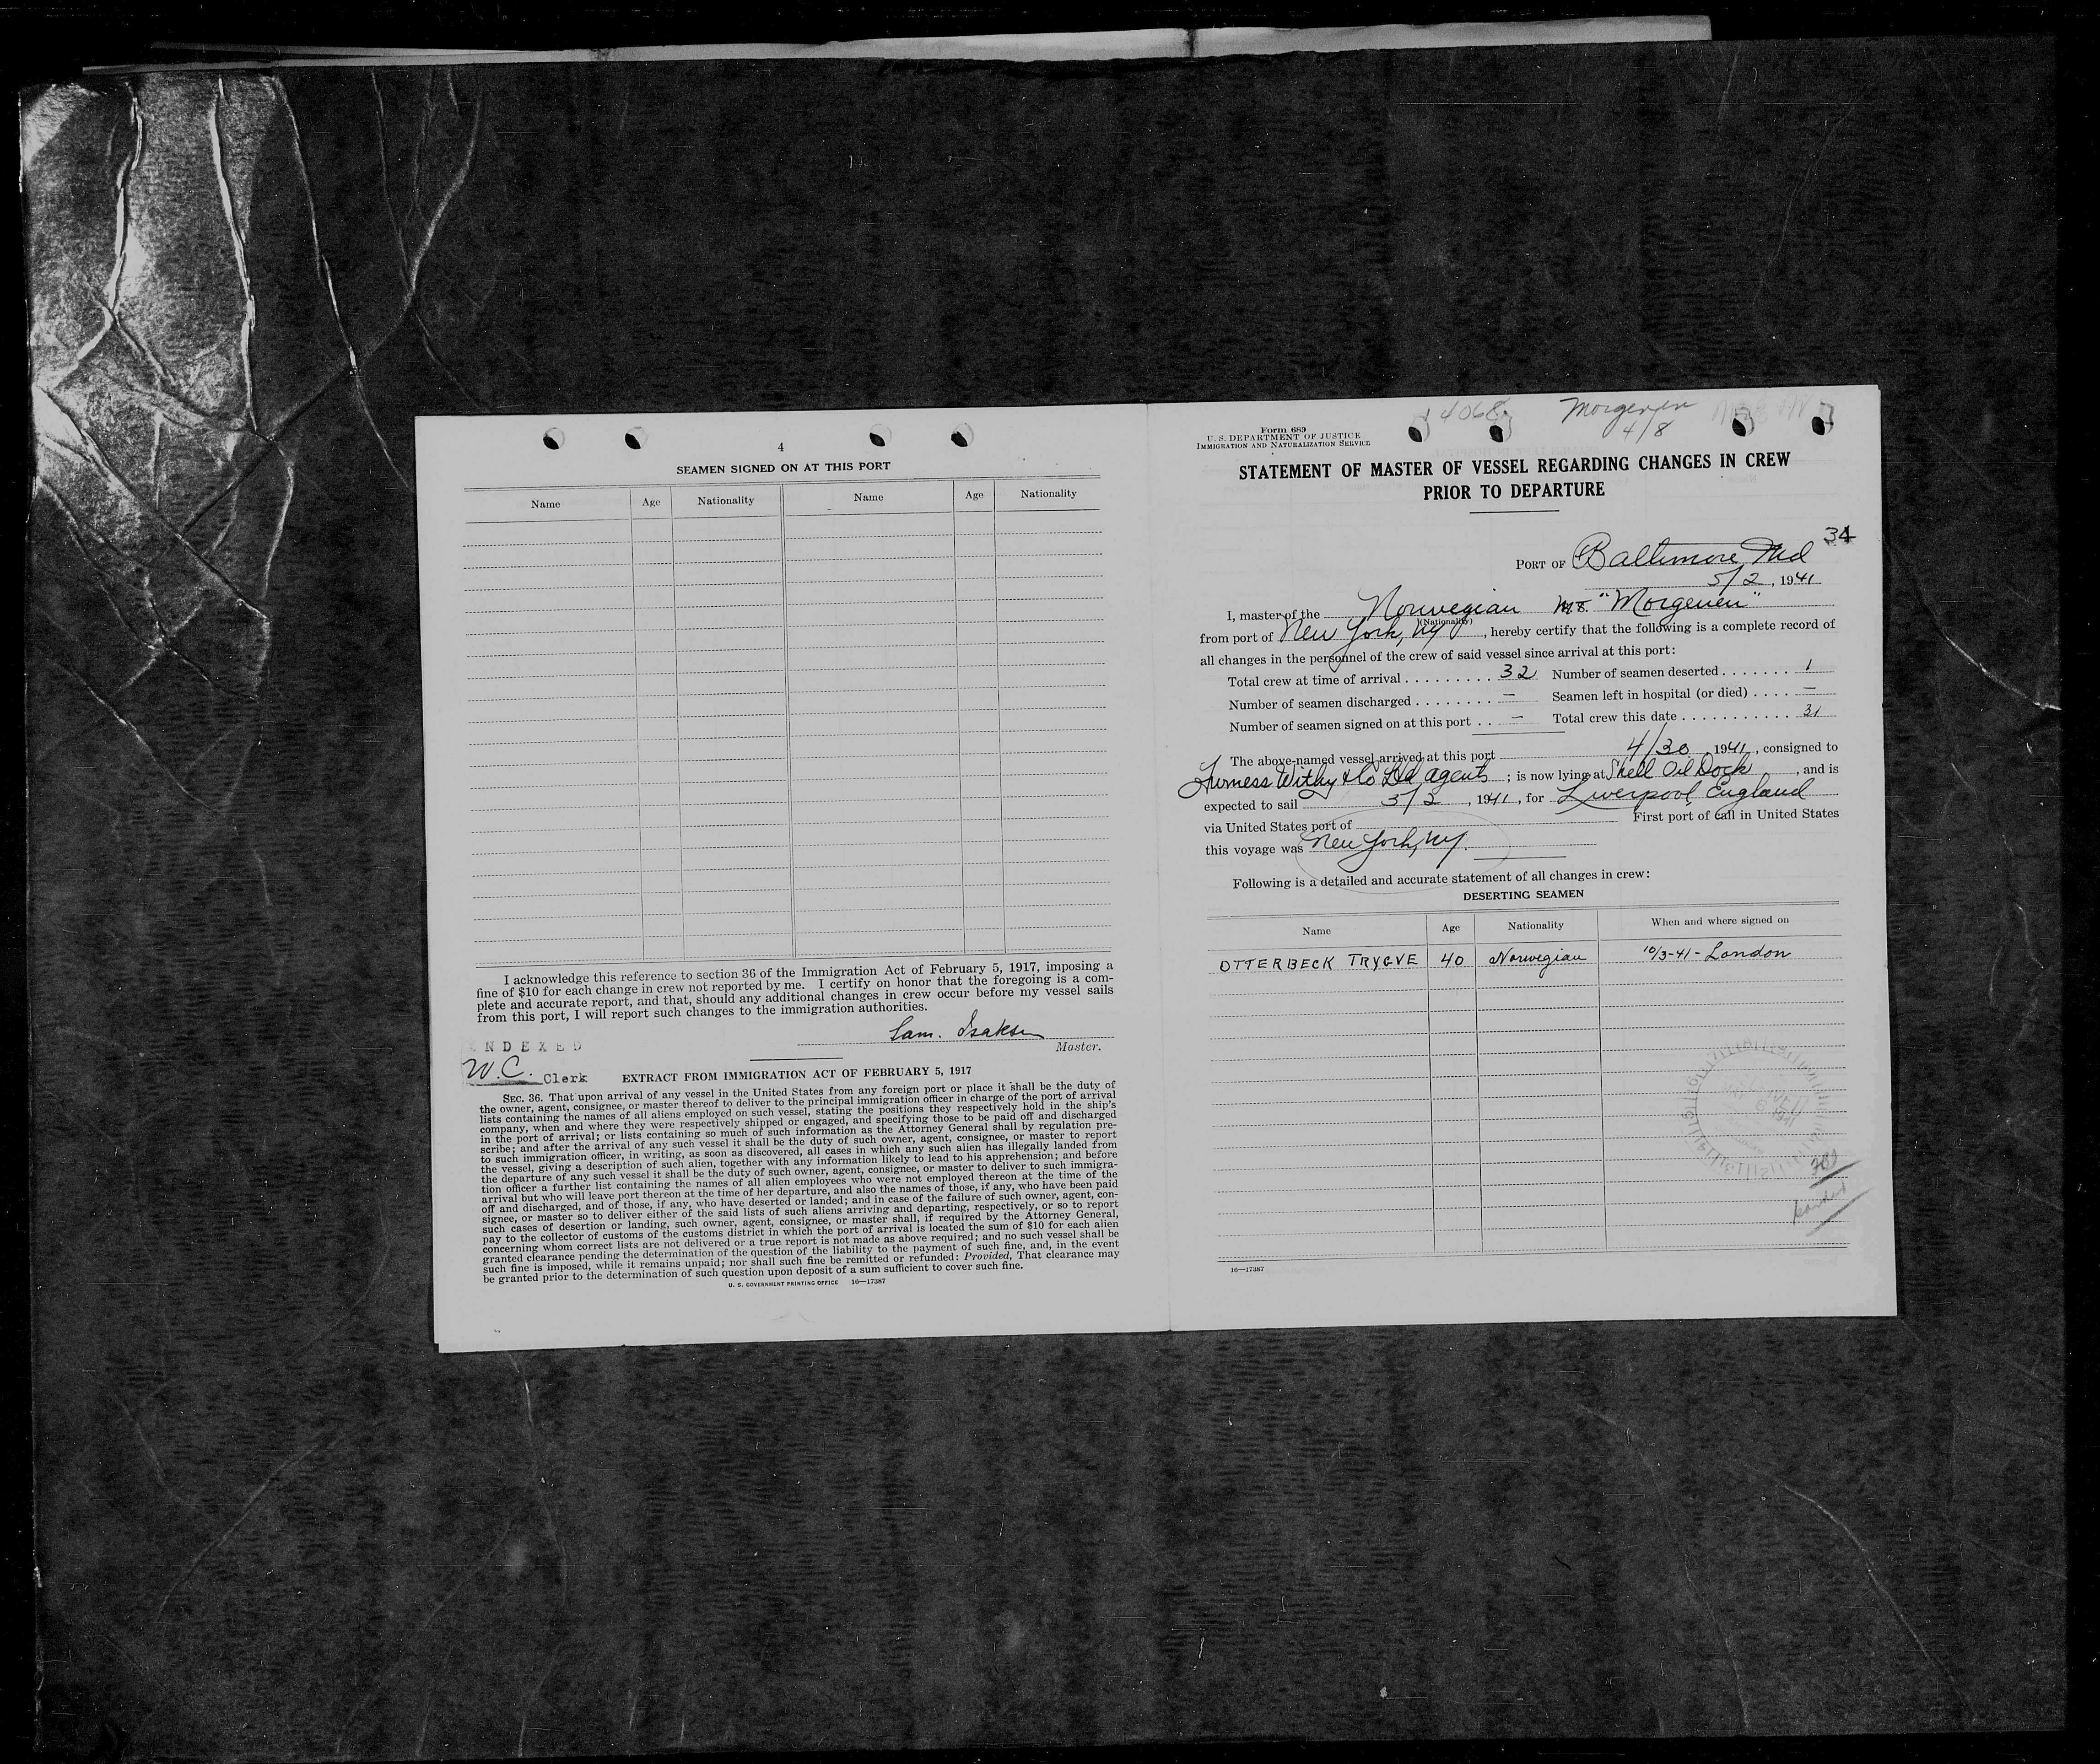 4
SEAMEN SIGNED ON AT THIS PORT
Name Age Nationality Name Age Nationality
I acknowledge this reference to section 36 of the Immigration Act of February 5, 1917, imposing a
fine of $10 for each change in crew not reported by me. I certify on honor that the foregoing is a com-
plete and accurate report, and that, should any additional changes in crew occur before my vessel sails
from this port, I will report such changes to the immigration authorities.
Sam. Isaksen
Master.
NDEXED
W.C. Clerk
EXTRACT FROM IMMIGRATION ACT OF FEBRUARY 5, 1917
SEC. 36. That upon arrival of any vessel in the United States from any foreign port or place it shall be the duty of
the owner, agent, consignee, or master thereof to deliver to the principal immigration officer in charge of the port of arrival
lists containing the names of all aliens employed on such vessel, stating the positions they respectively hold in the ship's
company, when and where they were respectively shipped or engaged, and specifying those to be paid off and discharged
in the port of arrival; or lists containing so much of such information as the Attorney General shall by regulation pre-
scribe; and after the arrival of any such vessel it shall be the duty of such owner, agent, consignee, or master to report
to such immigration officer, in writing, as soon as discovered, all cases in which any such alien has illegally landed from
the vessel, giving a description of such alien, together with any information likely to lead to his apprehension; and before
the departure of any such vessel it shall be the duty of such owner, agent, consignee, or master to deliver to such immigra-
tion officer a further list containing the names of all alien employees who were not employed thereon at the time of the
arrival but who will leave port thereon at the time of her departure, and also the names of those, if any, who have been paid
off and discharged, and of those, if any, who have deserted or landed; and in case of the failure of such owner, agent, con-
signee, or master so to deliver either of the said lists of such aliens arriving and departing, respectively, or so to report
such cases of desertion or landing, such owner, agent, consignee, or master shall, if required by the Attorney General,
pay to the collector of customs of the customs district in which the port of arrival is located the sum of $10 for each alien
concerning whom correct lists are not delivered or a true report is not made as above required; and no such vessel shall be
granted clearance pending the determination of the question of the liability to the payment of such fine, and, in the event
such fine is imposed, while it remains unpaid; nor shall such fine be remitted or refunded: Provided, That clearance may
be granted prior to the determination of such question upon deposit of a sum sufficient to cover such fine.
U. S. GOVERNMENT PRINTING OFFICE 16—17387
4068
Morgenen
4/8
Form 689
U. S. DEPARTMENT OF JUSTICE
IMMIGRATION AND NATURALIZATION SERVICE
STATEMENT OF MASTER OF VESSEL REGARDING CHANGES IN CREW
PRIOR TO DEPARTURE
34
PORT OF Baltimore Md
5/2, 1941
I, master of the Norwegian M.S. "Morgenen"
(Nationality)
from port of New York, NY, hereby certify that the following is a complete record of
all changes in the personnel of the crew of said vessel since arrival at this port:
Total crew at time of arrival . . . . . . . . . 32 Number of seamen deserted . . . . . . . 1
Number of seamen discharged . . . . . . . . — Seamen left in hospital (or died) . . . . —
Number of seamen signed on at this port . . — Total crew this date . . . . . . . . . . . . 31
The above-named vessel arrived at this port 4/30, 1941, consigned to
Furness Withy & Co Ltd agents; is now lying at Shell Oil Dock, and is
expected to sail 5/2, 1941, for Liverpool, England
via United States port of First port of call in United States
this voyage was New York, NY.
Following is a detailed and accurate statement of all changes in crew:
DESERTING SEAMEN
Name Age Nationality When and where signed on
OTTERBECK TRYGVE 40 Norwegian 10/3-41 - London
16—17387